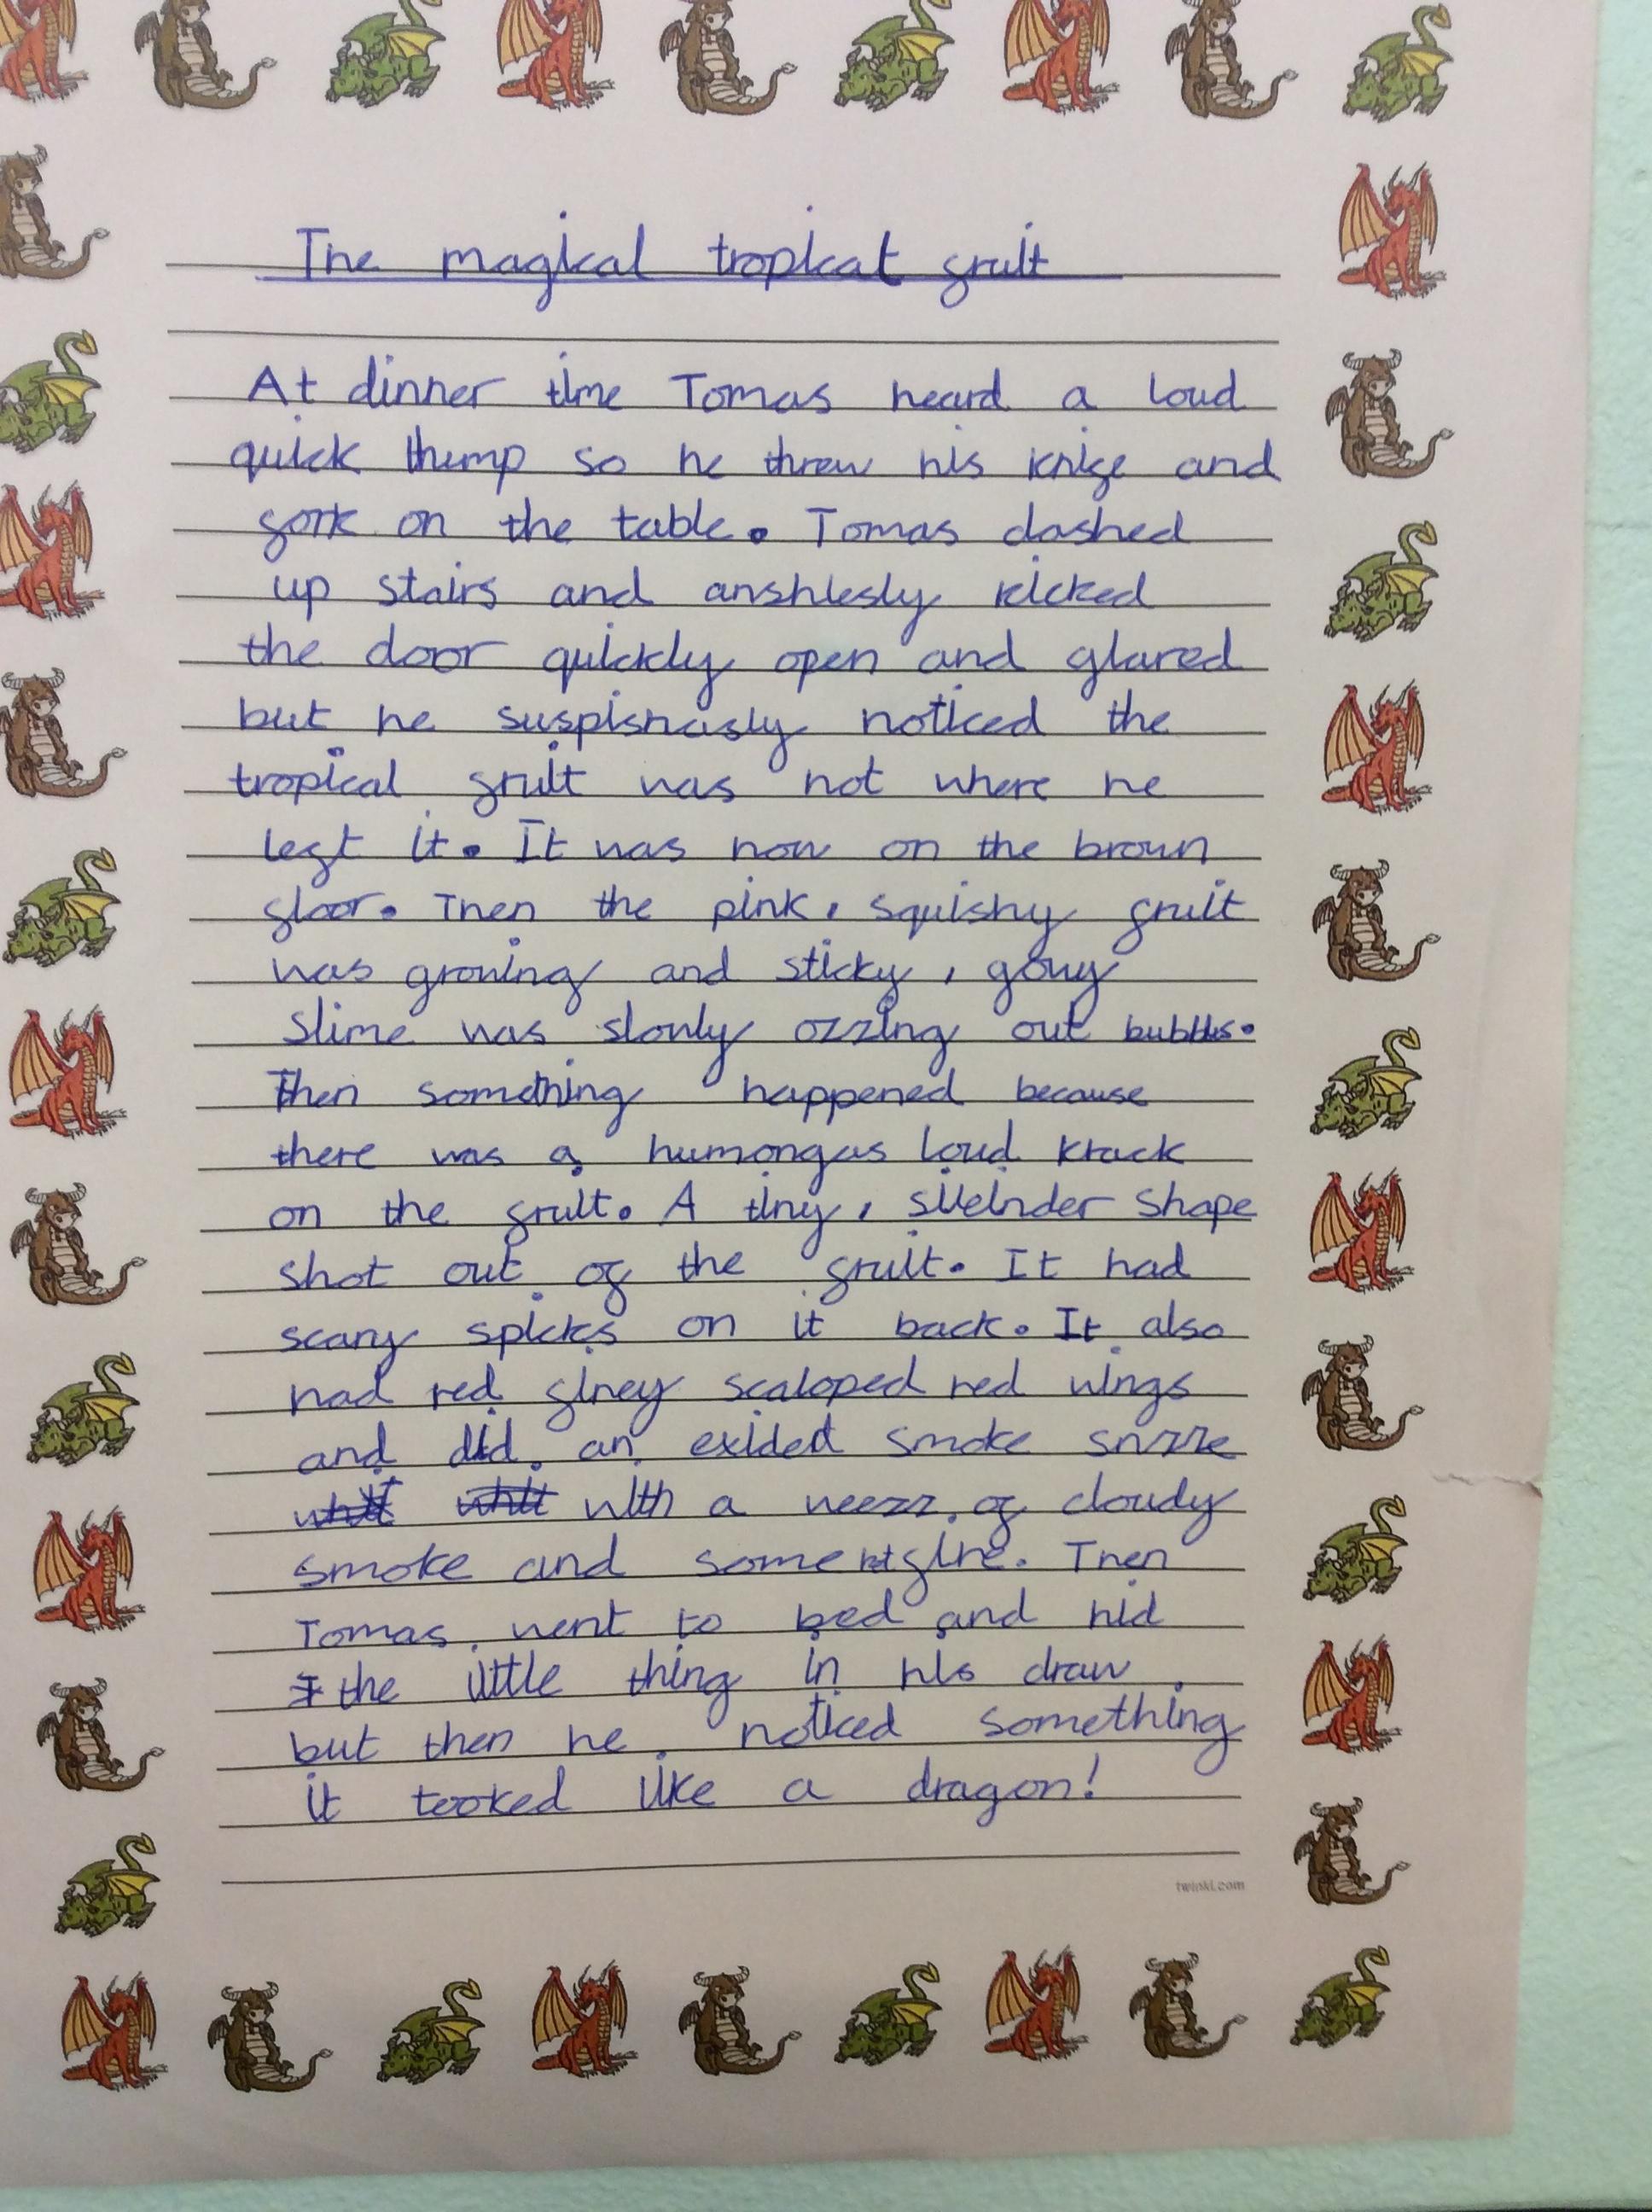 The magical tropical fruit
At dinner time Tomas heard a loud
quick thump so he threw his knife and
fork on the table. Tomas dashed
up stairs and anshlesly kicked
the door quickly open and glared
but he suspishusly noticed the
tropical fruit was not where he
left it. It was now on the brown
floor. Then the pink, squishy fruit
was growing and sticky, gouy
slime was slowly ozzing out bubbles.
Then something happened because
there was a humongus loud krack
on the fruit. A tiny, sileinder shape
shot out of the fruit. It had
scary spicks on it back. It also
had red firey scaloped red wings
and did an exided smoke snzze
with a weezz of cloudy
smoke and some hot fire. Then
Tomas went to bed and hid
the little thing in his draw
but then he noticed something
it looked like a dragon!
twinkl.com